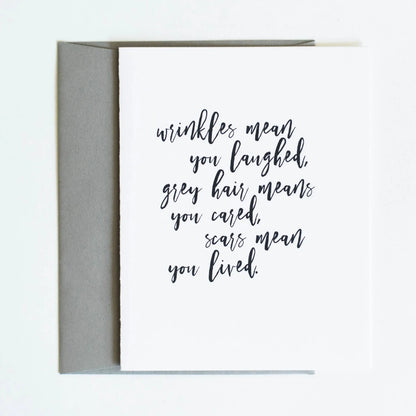 wrinkles mean
you laughed,
grey hair means
you cared,
scars mean
you lived.